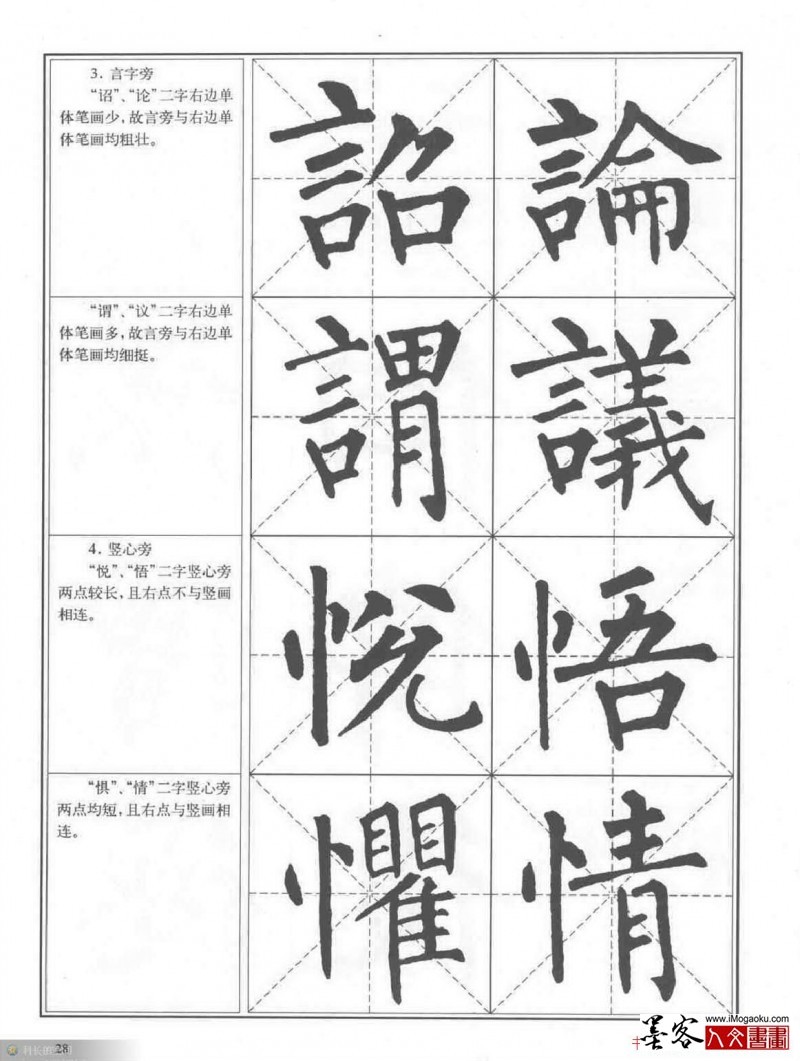 3. 言字旁
“诏”、“论”二字右边单
体笔画少，故言旁与右边单
体笔画均粗壮。
詔 論
“谓”、“议”二字右边单
体笔画多，故言旁与右边单
体笔画均细挺。
謂 議
4. 竖心旁
“悦”、“悟”二字竖心旁
两点较长，且右点不与竖画
相连。
悅 悟
“惧”、“情”二字竖心旁
两点均短，且右点与竖画相
连。
懼 情
28
墨客
www.iMogaoku.com
人文書畫